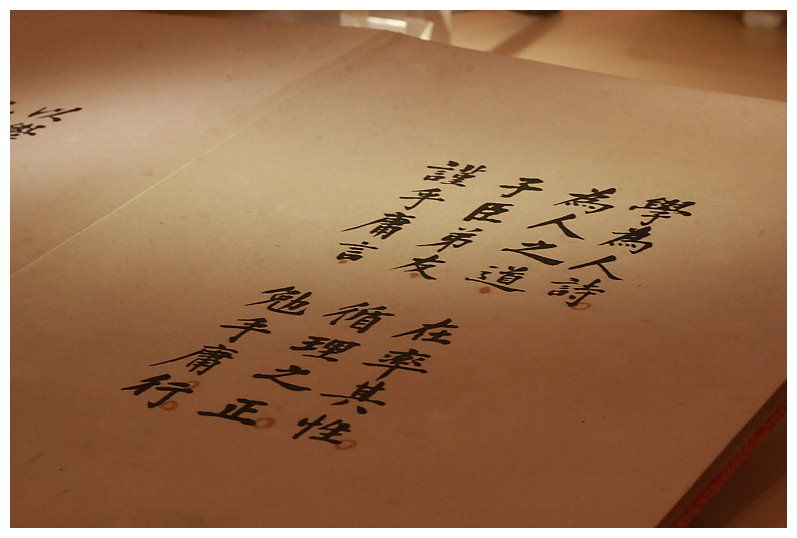 學為人詩
為人之道 在率其性
子臣弟友 循理之正
謹乎庸言 勉乎庸行
以學